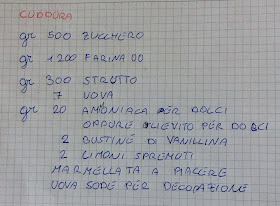 CUDDURA
gr 500 ZUCCHERO
gr 1200 FARINA 00
gr 300 STRUTTO
7 UOVA
gr 20 AMONIACA PER DOLCI
OPPURE LIEVITO PER DOLCI
2 BUSTINE DI VANILLINA
2 LIMONI SPREMUTI
MARMELLATA A PIACERE
UOVA SODE PER DECORAZIONE